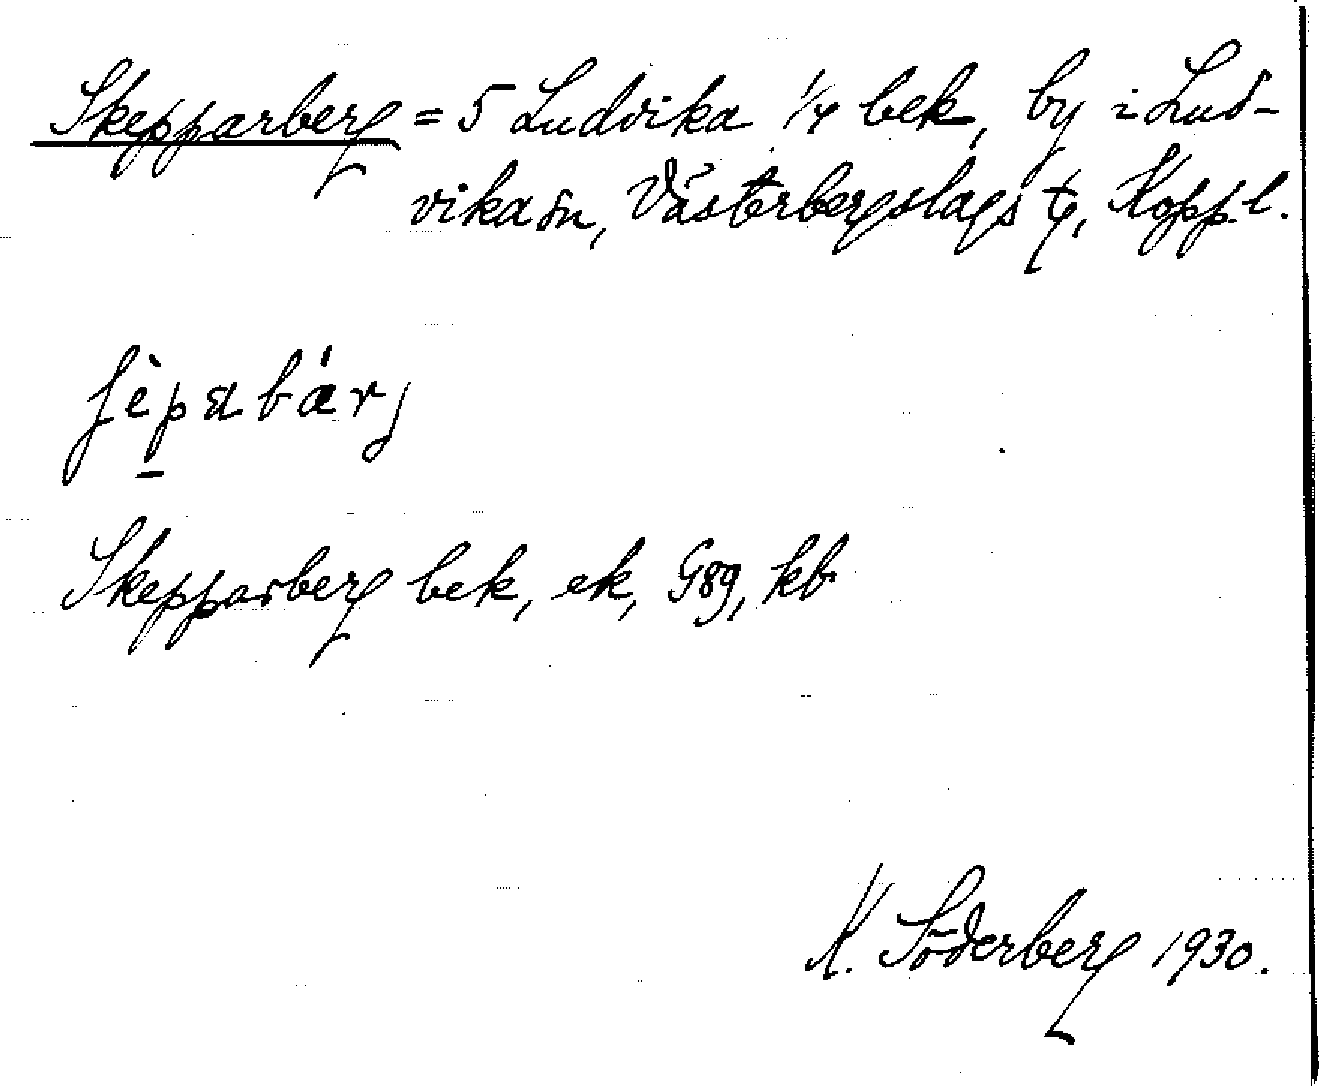 Skepparberg = 5 Ludvika 1/4 bek, by i Lud-
vika sn, Västerbergslags tg, Koppl.
ʃèpabárj
Skepparberg bek, ek, G89, kb
K. Söderberg 1930.